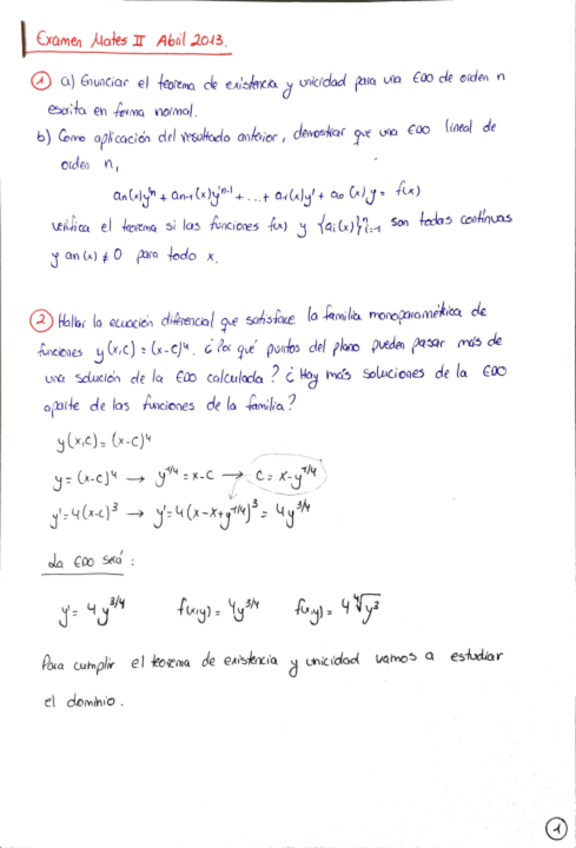 Examen Mates II Abril 2013.
① a) Enunciar el teorema de existencia y unicidad para una EDO de orden n
escrita en forma normal.
b) Como aplicación del resultado anterior, demostrar que una EDO lineal de
orden n,
an(x)yⁿ + an-1(x)yⁿ⁻¹ + ... + a1(x)y' + a0(x)y = f(x)
verifica el teorema si las funciones f(x) y {ai(x)}ⁿi=1 son todas continuas
y an(x) ≠ 0 para todo x.
② Hallar la ecuación diferencial que satisface la familia monoparamétrica de
funciones y(x,c) = (x-c)⁴. ¿Por qué puntos del plano pueden pasar más de
una solución de la EDO calculada? ¿Hay más soluciones de la EDO
aparte de las funciones de la familia?
y(x,c) = (x-c)⁴
y = (x-c)⁴ → y^1/4 = x-c → c = x-y^1/4
y' = 4(x-c)³ → y' = 4(x-x+y^1/4)³ = 4y^3/4
La EDO será:
y' = 4y^3/4 f(x,y) = 4y^3/4 f(x,y) = 4 ∜y³
Para cumplir el teorema de existencia y unicidad vamos a estudiar
el dominio.
1